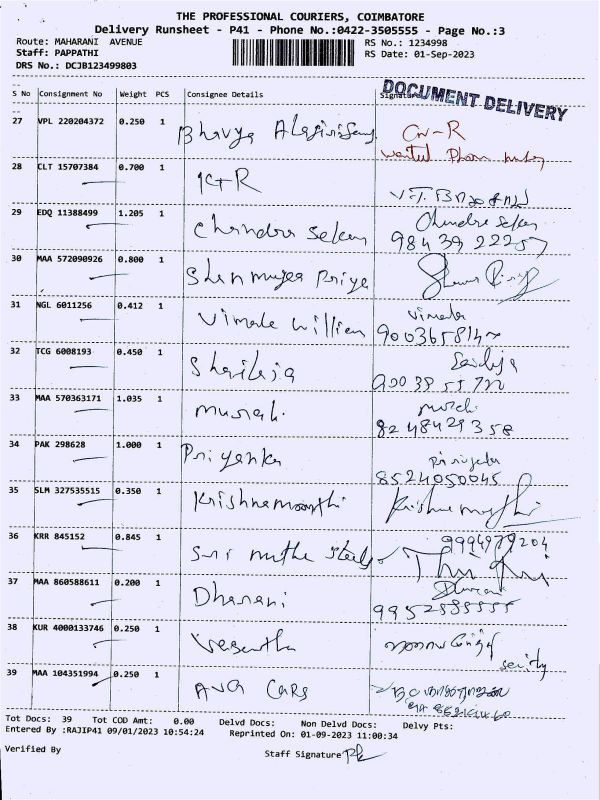 THE PROFESSIONAL COURIERS, COIMBATORE
Delivery Runsheet - P41 - Phone No.:0422-3505555 - Page No.:3
Route: MAHARANI AVENUE RS No.: 1234998
Staff: PAPPATHI RS Date: 01-Sep-2023
DRS No.: DCJB123499803
S No Consignment No Weight PCS Consignee Details Signature
DOCUMENT DELIVERY
27 VPL 220204372 0.250 1 Bhavya
28 CLT 15707384 0.700 1
29 EDQ 11388499 1.205 1 Chandra Sekar Chandra Sekar
98439 22257
30 MAA 572090926 0.800 1 Shanmuga Priya
31 NGL 6011256 0.412 1 Vimala William Vimala
32 TCG 6008193 0.450 1 Shailaja
33 MAA 570363171 1.035 1 Murali
8248429358
34 PAK 298628 1.000 1 Priyanka
8524050045
35 SLM 327535515 0.350 1 Krishnamoorthi
36 KRR 845152 0.845 1 9994979204
37 MAA 860588611 0.200 1 Dharani
38 KUR 4000133746 0.250 1 Vasantha
39 MAA 104351994 0.250 1 AVG CARS
Tot Docs: 39 Tot COD Amt: 0.00 Delvd Docs: Non Delvd Docs: Delvy Pts:
Entered By :RAJIP41 09/01/2023 10:54:24 Reprinted On: 01-09-2023 11:00:34
Verified By Staff Signature